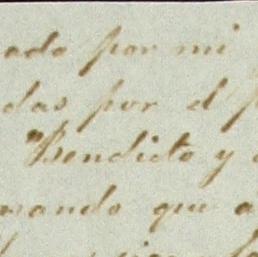 ado por mi
das por el
Bendicto y
mando que a